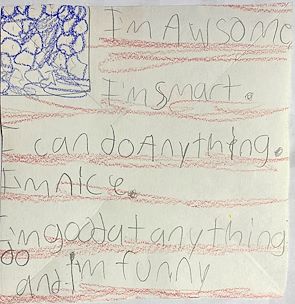 I'm Awsome
I'm smart.
I can do Anything.
I'm AIce.
I'm good at anything
do
and I'm funny